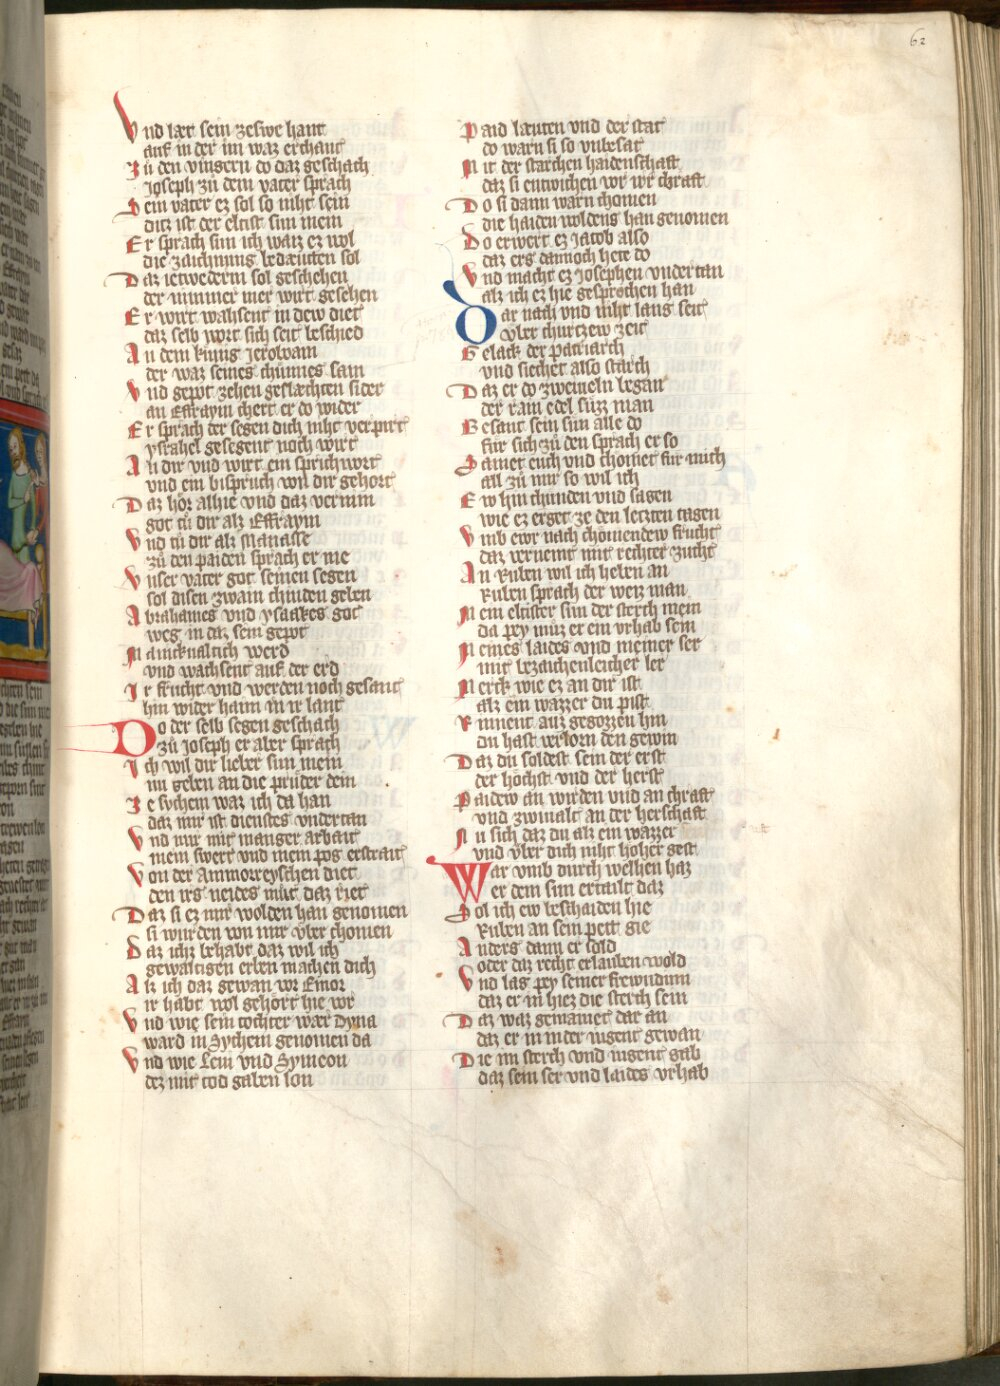 62
Vnd lært sein zeswe hant
auf in der im waz erchant
Zů den vingern do daz geschach
Joseph zů dem vater sprach
Nein vater ez sol so niht sein
ditz ist der eltist sun mein
Er sprach sun ich waiz ez wol
die zaichnung bedæuten sol
Daz ietwederm sol geschehen
der nimmer mer wirt gesehen
Er wirt wahsent in dew diet
daz selb wort sich seit beschied
An dem kunig Jeroboam
der waz seines chunnes sam
Vnd gepot zehen geslæchten sider
an Effraym chert er do wider
Er sprach der segen dich niht verpirt
ysrahel gesegent noch wirt
An dir vnd wirt ein sprichwort
vnd ein bispruch von dir gehort
Daz hor alhie vnd daz vernim
got tů dir alz Effraym
Vnd tů dir alz Manasse
zů den paiden sprach er me
Vnser vater got seinen segen
sol disen zwain chinden geben
Abrahames vnd ysaakes got
weg in daz sein gepot
Manickualtich werd
vnd wachsent auf der erd
Ir frucht vnd werden noch gesant
hin wider haim in ir lant
Do der selb segen geschach
zů Joseph er aber sprach
Ich wil dir lieber sun mein
nu geben an die průder dein
Ze sychem waz ich da han
daz mir ist dienstes vndertan
Vnd mir mit manger arbait
mein swert vnd mein pog erstrait
Von der Ammorreyschen diet
den irs neides můt daz riet
Daz si ez mir wolden han genomen
si wurden von mir vber chomen
Daz ichz behabt daz wil ich
gewaltigen erben machen dich
Alz ich daz gewan vor Emor
ir habt wol gehort hie vor
Vnd wie sein tochter waz Dyna
ward in Sychem genomen da
Vnd wie Leui vnd Symeon
dez mit tod gaben lon
Paid læuten vnd der stat
do warn si so vnbesat
Mit der starchen haidenschaft
daz si entwichen vor ir chraft
Do si dann warn chomen
die haiden woldens han genomen
Do erwert ez Jacob also
daz ers dannoch hete do
Vnd macht ez Josephen vndertan
alz ich ez hie gesprochen han
Dar nach vnd niht lang seit
vber churtzew zeit
Gelack der patriarch
vnd siechet also starch
Daz er do zweiueln began
der rain edel sůzz man
Besant sein sun alle do
fur sich zů den sprach er so
Samet euch vnd chomet fur mich
all zů mir so wil ich
Ew hin chunden vnd sagen
wie ez erget ze den letzten tagen
Vmb ewr nach chomendew frucht
daz vernemt mit rechter zucht
An Ruben wil ich heben an
Ruben sprach der weiz man
Mein eltister sun der sterch mein
da pey můz er ein vrhab sein
Meines laides vnd meiner ser
mit bezaichenleicher ler
Merck wie ez an dir ist
alz ein wazzer du pist
Rinnent auz gegozzen hin
du hast verlorn den gewin
Daz du soldest sein der erst
der hochst vnd der herst
Paidew an wirden vnd an chraft
vnd zwiualt an der herschaft
Nu sich daz du alz ein wazzer
vnd vber dich niht hoher gest
War vmb durch welhen haz
er dem sun ertailt daz
Sol ich ew beschaiden hie
Ruben an sein pett gie
Anders dann er sold
oder daz recht erlauben wold
Vnd lag pey seiner frewndinn
daz er in hiez die sterch sein
Daz waz gemainet dar an
daz er in in der iugent gewan
Die im sterch vnd iugent gab
daz sein ser vnd laides vrhab